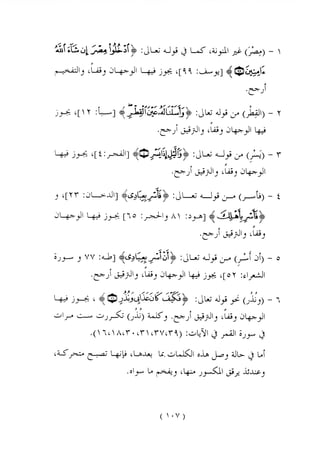 ١ – (مِصْرَ) غير المنونة، كما في قوله تعالى: ﴿ ادْخُلُوا مِصْرَ إِن شَاءَ اللَّهُ
آمِنِينَ ﴾ [يوسف: ٩٩]، يجوز فيها الوجهان وقفا، والتفخيم
أرجح.
٢ – (القِطْرِ) من قوله تعالى: ﴿ وَأَسَلْنَا لَهُ عَيْنَ الْقِطْرِ ﴾ [سبأ: ١٢]، يجوز
فيها الوجهان وقفا، والترقيق أرجح.
٣ – (يَسْرِ) من قوله تعالى: ﴿ وَاللَّيْلِ إِذَا يَسْرِ ﴾ [الفجر: ٤]، يجوز فيها
الوجهان وقفا، والترقيق أرجح.
٤ – (فأسر) من قوله تعالى: ﴿ فَأَسْرِ بِعِبَادِي ﴾ [الدخان: ٢٣]، و
﴿ فَأَسْرِ بِأَهْلِكَ ﴾ [هود: ٨١ والحجر: ٦٥] يجوز فيها الوجهان
وقفا، والترقيق أرجح.
٥ – (أن أسر) من قوله تعالى: ﴿ أَنْ أَسْرِ بِعِبَادِي ﴾ [طه: ٧٧ وسورة
الشعراء: ٥٢]، يجوز فيها الوجهان وقفا، والترقيق أرجح.
٦ – (ونُذُر) نحو قوله تعالى: ﴿ فَكَيْفَ كَانَ عَذَابِي وَنُذُرِ ﴾، يجوز فيها
الوجهان وقفا، والترقيق أرجح. وكلمة (نذر) تكررت ست مرات
في سورة القمر في الآيات: (١٦،١٨،٣٠،٣١،٣٧،٣٩).
أما في حالة وصل هذه الكلمات بما بعدها، فإنها تتبع حركتها،
وعندئذ يرقق المكسور منها، ويفخم ما سواه.
( ١٠٧ )